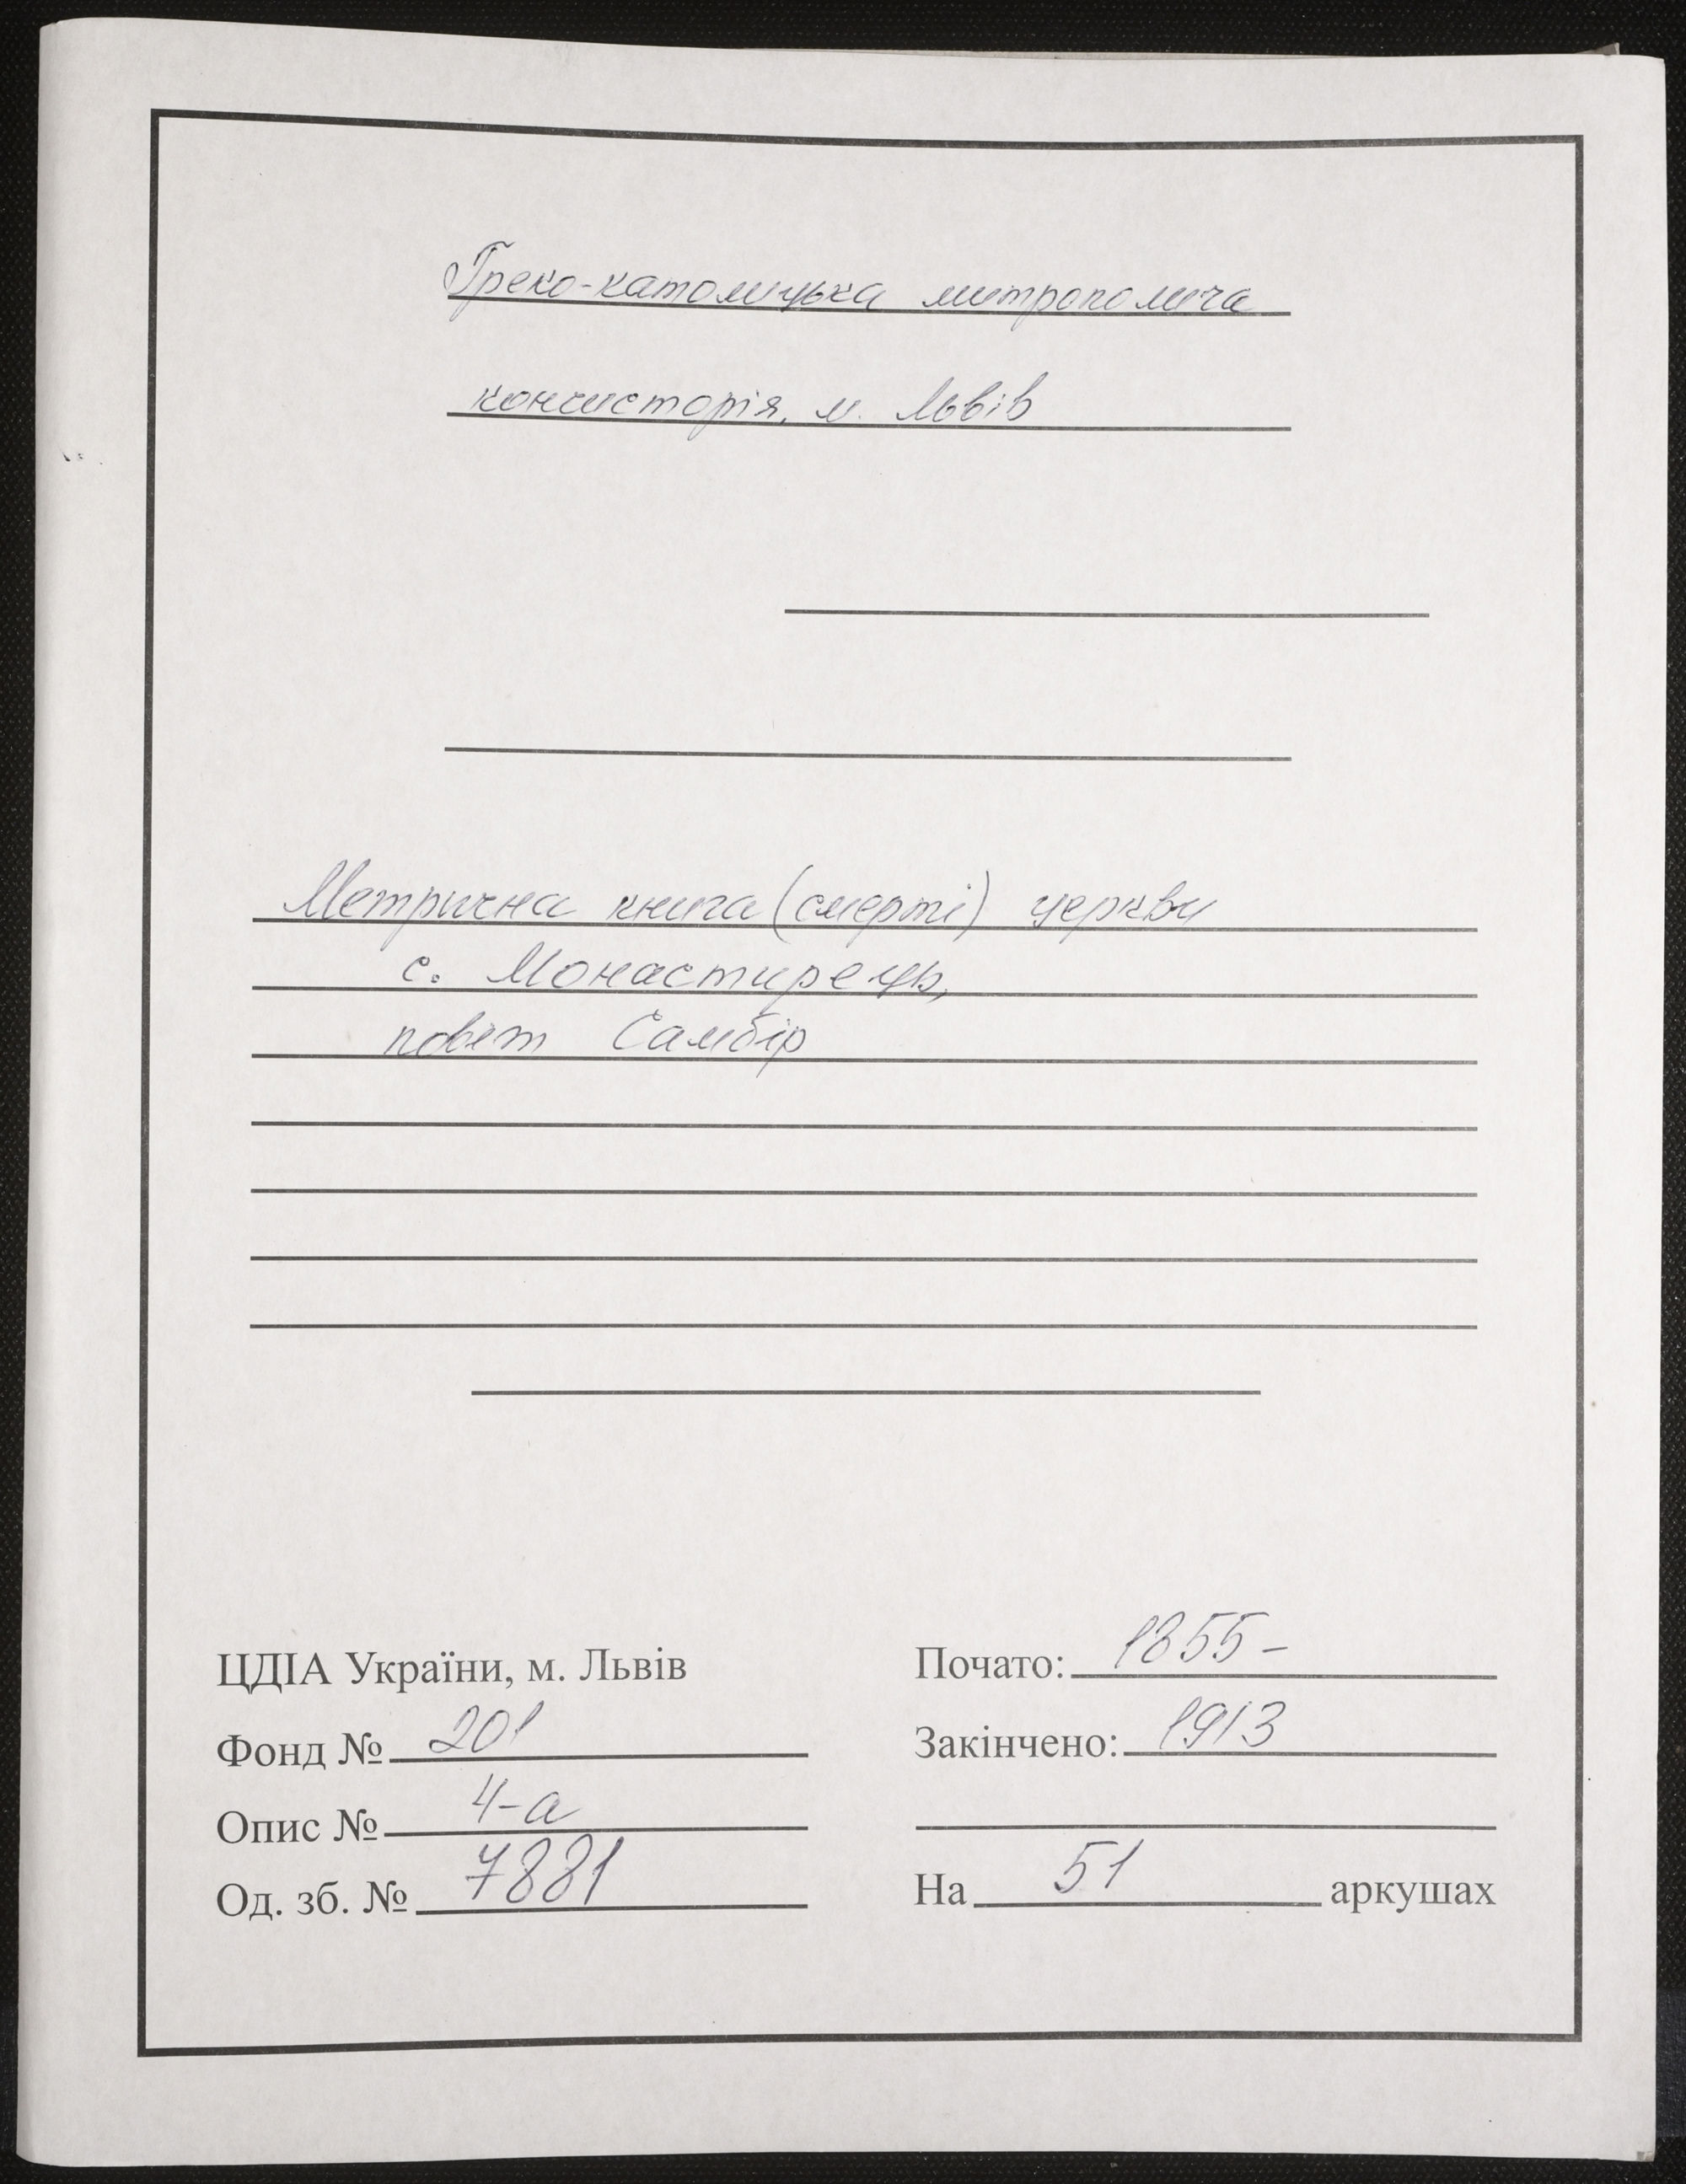 Греко-католицька митрополича
консисторія, м. Львів
Метрична книга (смерті) церкви
с. Монастирець,
повіт Самбір
ЦДІА України, м. Львів
Фонд № 201
Опис № 4-а
Од. зб. № 7881
Почато: 1855-
Закінчено: 1913
На 51 аркушах